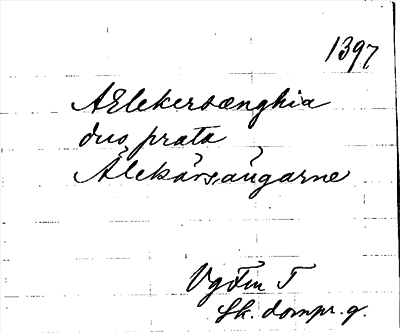 1397
AElekersænghia
duo prata
Älekärsängarne
Vg Fin T
Sk. dompr. g.